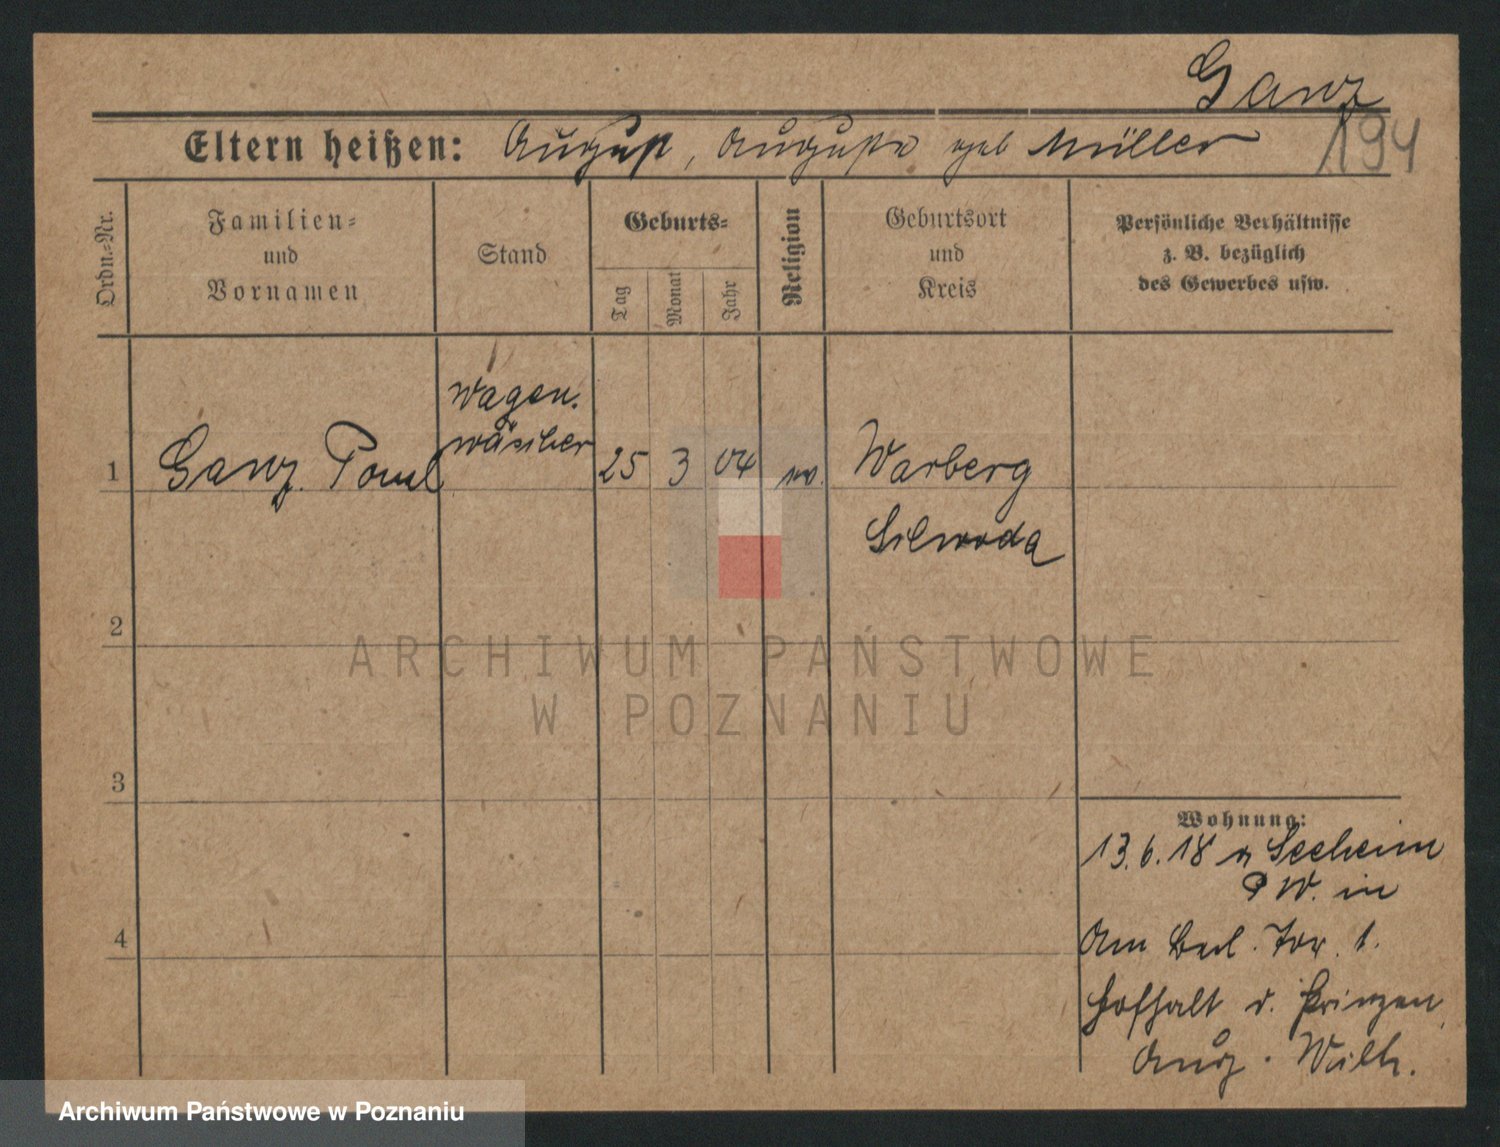 Ganz
194
Eltern heißen: August, Auguste geb Müller
Ordn.-Nr.
Familien-
und
Vornamen
Stand
Geburts-
Tag
Monat
Jahr
Religion
Geburtsort
und
Kreis
Persönliche Verhältnisse
z. B. bezüglich
des Gewerbes usw.
Wagen.
wäscher
1 Ganz. Paul 25 3 04 Warberg
2
3
4
Wohnung:
13.6.18 n Seeheim
P W. in
Am Berl. Tor. 1.
Hofhalt d. Prinzen
Aug. Wilh.
ARCHIWUM PAŃSTWOWE
W POZNANIU
Archiwum Państwowe w Poznaniu